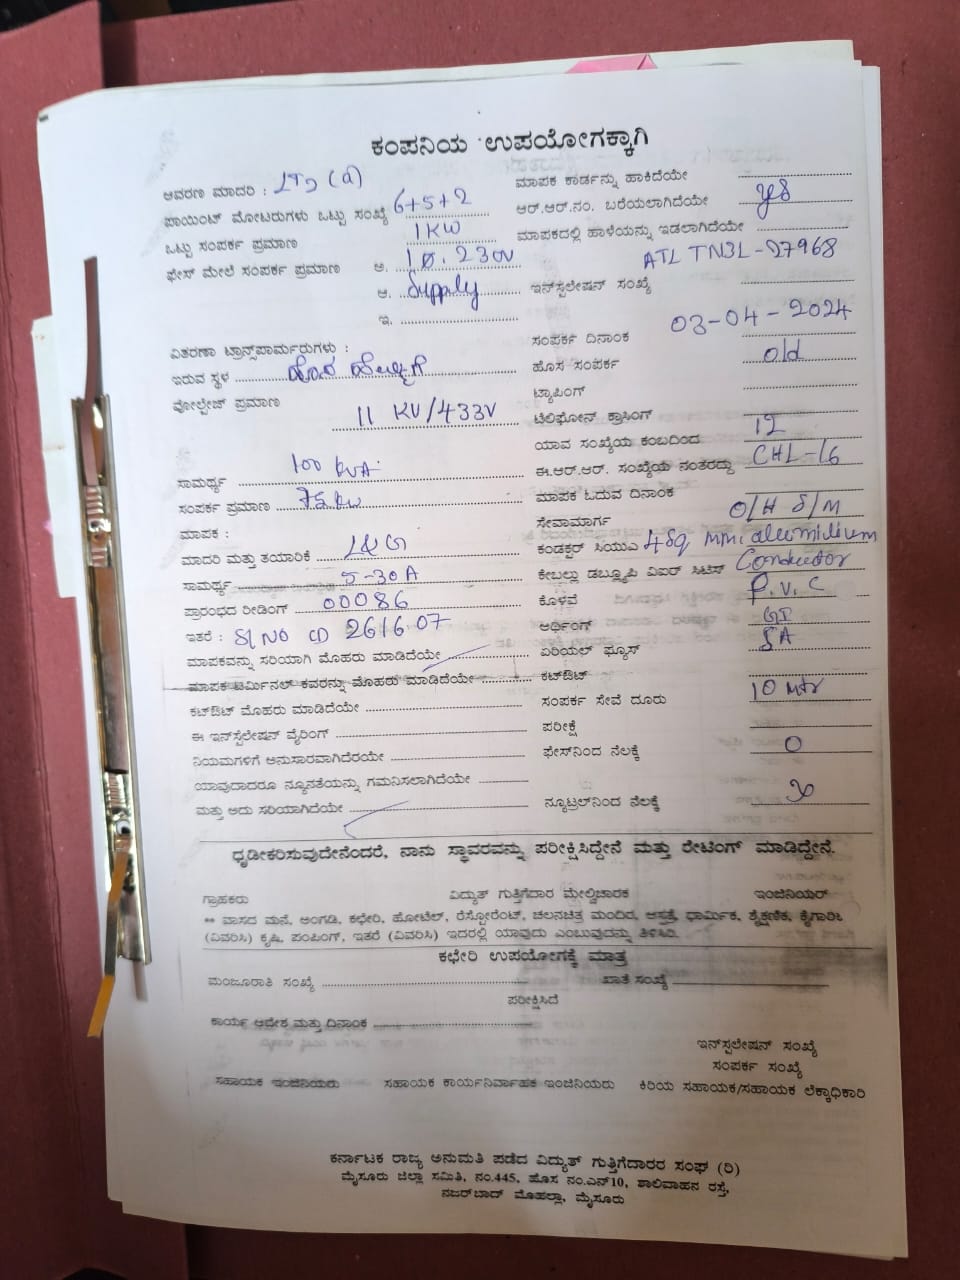 ಕಂಪನಿಯ ಉಪಯೋಗಕ್ಕಾಗಿ
ಆವರಣ ಮಾದರಿ : LT2 (a)
ಪಾಯಿಂಟ್ ಮೋಟರುಗಳು ಒಟ್ಟು ಸಂಖ್ಯೆ 6+5+2
ಒಟ್ಟು ಸಂಪರ್ಕ ಪ್ರಮಾಣ 1KW
ಫೇಸ್ ಮೇಲೆ ಸಂಪರ್ಕ ಪ್ರಮಾಣ ಅ. 1Ø. 230V
ಆ. Supply
ಇ.
ವಿತರಣಾ ಟ್ರಾನ್ಸ್‌ಪಾರ್ಮರುಗಳು :
ಇರುವ ಸ್ಥಳ
ವೋಲ್ಟೇಜ್ ಪ್ರಮಾಣ 11 KV/433V
ಸಾಮರ್ಥ್ಯ 100 KVA
ಸಂಪರ್ಕ ಪ್ರಮಾಣ
ಮಾಪಕ :
ಮಾದರಿ ಮತ್ತು ತಯಾರಿಕೆ L&G
ಸಾಮರ್ಥ್ಯ 5-30A
ಪ್ರಾರಂಭದ ರೀಡಿಂಗ್ 00086
ಇತರೆ : Sl NO CD 261607
ಮಾಪಕವನ್ನು ಸರಿಯಾಗಿ ಮೊಹರು ಮಾಡಿದೆಯೇ
ಮಾಪಕ ಟರ್ಮಿನಲ್ ಕವರನ್ನು ಮೊಹರು ಮಾಡಿದೆಯೇ
ಕಟ್‌ಔಟ್ ಮೊಹರು ಮಾಡಿದೆಯೇ
ಈ ಇನ್‌ಸ್ಟಲೇಷನ್ ವೈರಿಂಗ್
ನಿಯಮಗಳಿಗೆ ಅನುಸಾರವಾಗಿದೆಯೇ
ಯಾವುದಾದರೂ ನ್ಯೂನತೆಯನ್ನು ಗಮನಿಸಲಾಗಿದೆಯೇ
ಮತ್ತು ಅದು ಸರಿಯಾಗಿದೆಯೇ
ಮಾಪಕ ಕಾರ್ಡನ್ನು ಹಾಕಿದೆಯೇ
ಆರ್.ಆರ್.ನಂ. ಬರೆಯಲಾಗಿದೆಯೇ yes
ಮಾಪಕದಲ್ಲಿ ಹಾಳೆಯನ್ನು ಇಡಲಾಗಿದೆಯೇ
ATL TN3L-27968
ಇನ್‌ಸ್ಟಲೇಷನ್ ಸಂಖ್ಯೆ
ಸಂಪರ್ಕ ದಿನಾಂಕ 03-04-2024
ಹೊಸ ಸಂಪರ್ಕ old
ಟ್ಯಾಪಿಂಗ್
ಟೆಲಿಫೋನ್ ಕ್ರಾಸಿಂಗ್
ಯಾವ ಸಂಖ್ಯೆಯ ಕಂಬದಿಂದ 12
ಈ.ಆರ್.ಆರ್. ಸಂಖ್ಯೆಯ ನಂತರದ್ದು CHL-16
ಮಾಪಕ ಓದುವ ದಿನಾಂಕ
ಸೇವಾಮಾರ್ಗ O/H S/M
ಕಂಡಕ್ಟರ್ ಸಿಯುಎ 4 Sq mm aluminium
ಕೇಬಲ್ಲು ಡಬ್ಲ್ಯೂಪಿ ವಿಐರ್ ಸಿಟಿಸ್ Conductor
ಕೊಳವೆ P.V.C
ಅರ್ಥಿಂಗ್ GI
ಏರಿಯಲ್ ಫ್ಯೂಸ್ 5A
ಕಟ್‌ಔಟ್
ಸಂಪರ್ಕ ಸೇವೆ ದೂರು 10 mtr
ಪರೀಕ್ಷೆ
ಫೇಸ್‌ನಿಂದ ನೆಲಕ್ಕೆ 0
ನ್ಯೂಟ್ರಲ್‌ನಿಂದ ನೆಲಕ್ಕೆ
ಧೃಡೀಕರಿಸುವುದೇನೆಂದರೆ, ನಾನು ಸ್ಥಾವರವನ್ನು ಪರೀಕ್ಷಿಸಿದ್ದೇನೆ ಮತ್ತು ರೇಟಿಂಗ್ ಮಾಡಿದ್ದೇನೆ.
ಗ್ರಾಹಕರು ವಿದ್ಯುತ್ ಗುತ್ತಿಗೆದಾರ ಮೇಲ್ವಿಚಾರಕ ಇಂಜಿನಿಯರ್
** ವಾಸದ ಮನೆ, ಅಂಗಡಿ, ಕಛೇರಿ, ಹೋಟೆಲ್, ರೆಸ್ಟೋರೆಂಟ್, ಚಲನಚಿತ್ರ ಮಂದಿರ, ಆಸ್ಪತ್ರೆ, ಧಾರ್ಮಿಕ, ಶೈಕ್ಷಣಿಕ, ಕೈಗಾರಿಕೆ
(ವಿವರಿಸಿ) ಕೃಷಿ, ಪಂಪಿಂಗ್, ಇತರೆ (ವಿವರಿಸಿ) ಇದರಲ್ಲಿ ಯಾವುದು ಎಂಬುವುದನ್ನು ತಿಳಿಸಿರಿ.
ಕಛೇರಿ ಉಪಯೋಗಕ್ಕೆ ಮಾತ್ರ
ಮಂಜೂರಾತಿ ಸಂಖ್ಯೆ ಖಾತೆ ಸಂಖ್ಯೆ
ಪರೀಕ್ಷಿಸಿದೆ
ಕಾರ್ಯ ಆದೇಶ ಮತ್ತು ದಿನಾಂಕ
ಇನ್‌ಸ್ಟಲೇಷನ್ ಸಂಖ್ಯೆ
ಸಂಪರ್ಕ ಸಂಖ್ಯೆ
ಸಹಾಯಕ ಇಂಜಿನಿಯರು ಸಹಾಯಕ ಕಾರ್ಯನಿರ್ವಾಹಕ ಇಂಜಿನಿಯರು ಕಿರಿಯ ಸಹಾಯಕ/ಸಹಾಯಕ ಲೆಕ್ಕಾಧಿಕಾರಿ
ಕರ್ನಾಟಕ ರಾಜ್ಯ ಅನುಮತಿ ಪಡೆದ ವಿದ್ಯುತ್ ಗುತ್ತಿಗೆದಾರರ ಸಂಘ (ರಿ)
ಮೈಸೂರು ಜಿಲ್ಲಾ ಸಮಿತಿ, ನಂ.445, ಹೊಸ ನಂ.ಎನ್10, ಶಾಲಿವಾಹನ ರಸ್ತೆ,
ನಜರ್‌ಬಾದ್ ಮೊಹಲ್ಲಾ, ಮೈಸೂರು